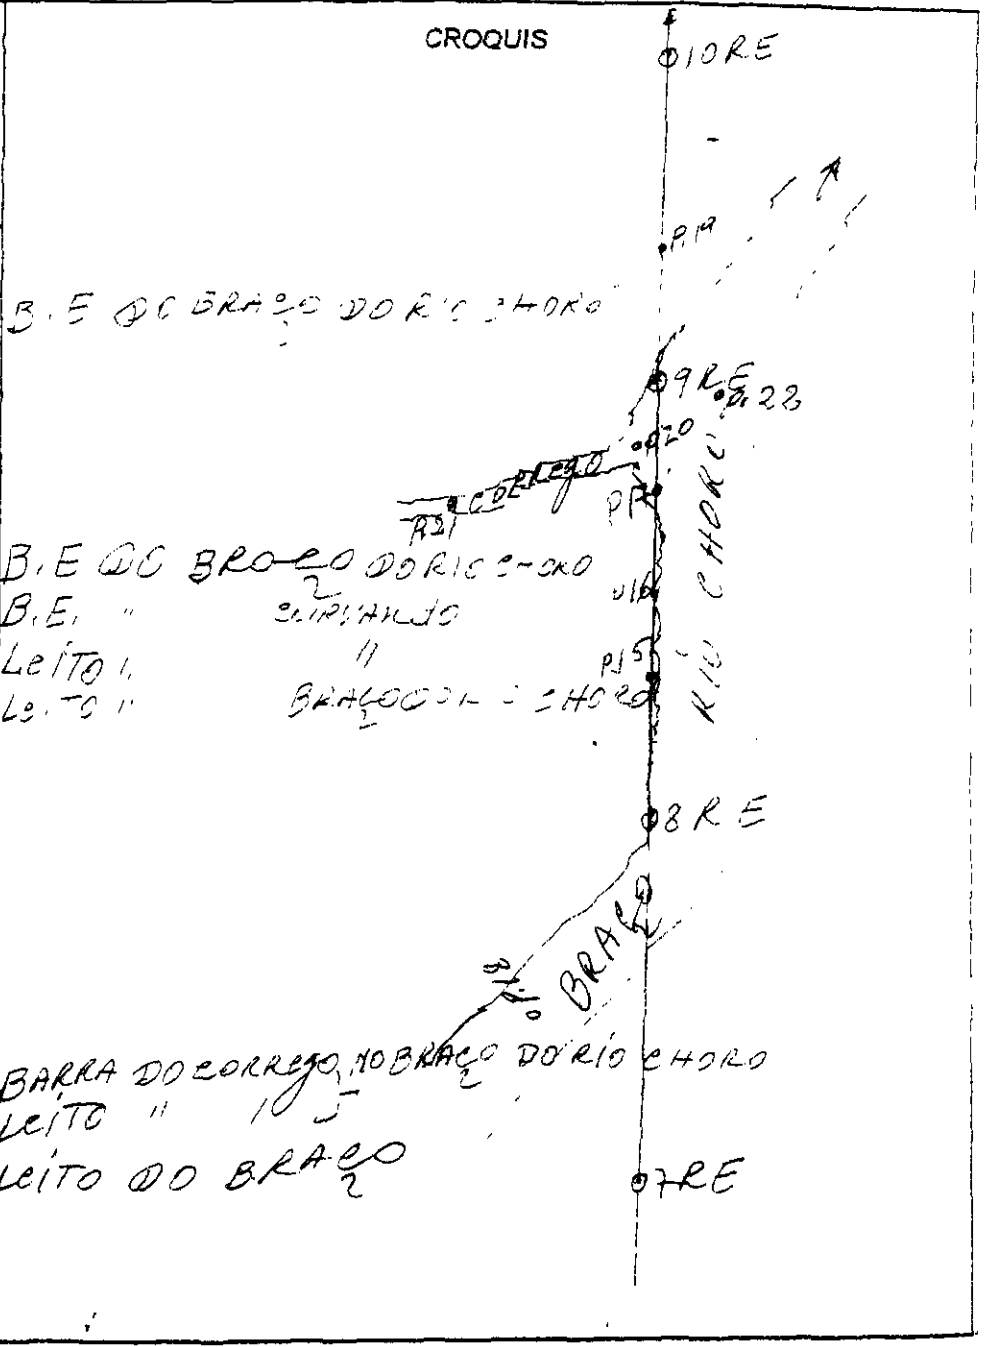 CROQUIS
10RE
P.19
B.E DO BRAÇO DO RIO CHORO
9RE
P.22
P20
CORREGO
P21
P17
RIO CHORO
B.E DO BRAÇO DO RIO CHORO
B.E. "
P16
LEITO " "
P15
LEITO " BRAÇO DO RIO CHORO
8RE
BRAÇO
BARRA DO CORREGO NO BRAÇO DO RIO CHORO
LEITO " "
LEITO DO BRAÇO
7RE